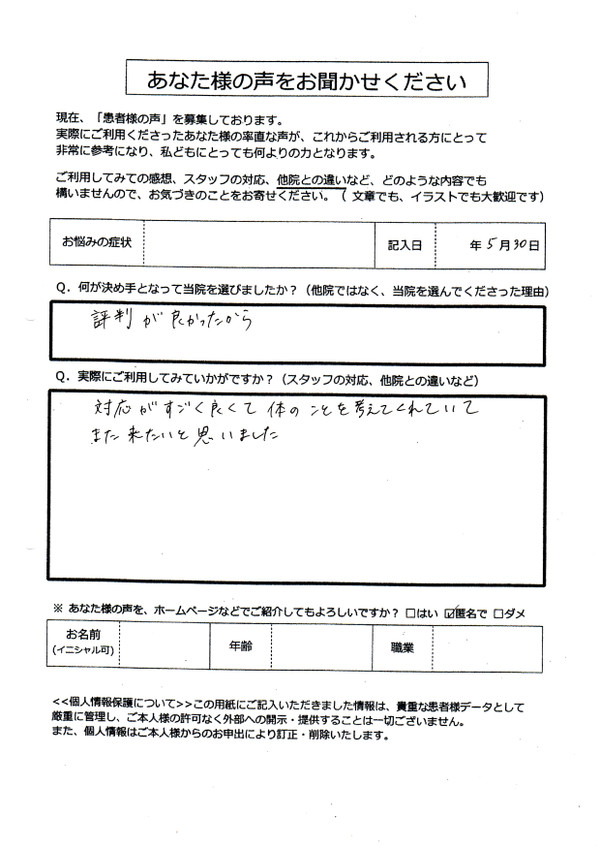 あなた様の声をお聞かせください
現在、「患者様の声」を募集しております。
実際にご利用くださったあなた様の率直な声が、これからご利用される方にとって
非常に参考になり、私どもにとっても何よりの力となります。
ご利用してみての感想、スタッフの対応、他院との違いなど、どのような内容でも
構いませんので、お気づきのことをお寄せください。（ 文章でも、イラストでも大歓迎です）
お悩みの症状 記入日 年 5 月 30 日
Q．何が決め手となって当院を選びましたか？（他院ではなく、当院を選んでくださった理由）
評判が良かったから
Q．実際にご利用してみていかがですか？（スタッフの対応、他院との違いなど）
対応がすごく良くて 体のことを考えてくれていて
また来たいと思いました
※ あなた様の声を、ホームページなどでご紹介してもよろしいですか？ □はい ☑匿名で □ダメ
お名前
(イニシャル可) 年齢 職業
<<個人情報保護について>>この用紙にご記入いただきました情報は、貴重な患者様データとして
厳重に管理し、ご本人様の許可なく外部への開示・提供することは一切ございません。
また、個人情報はご本人様からのお申出により訂正・削除いたします。